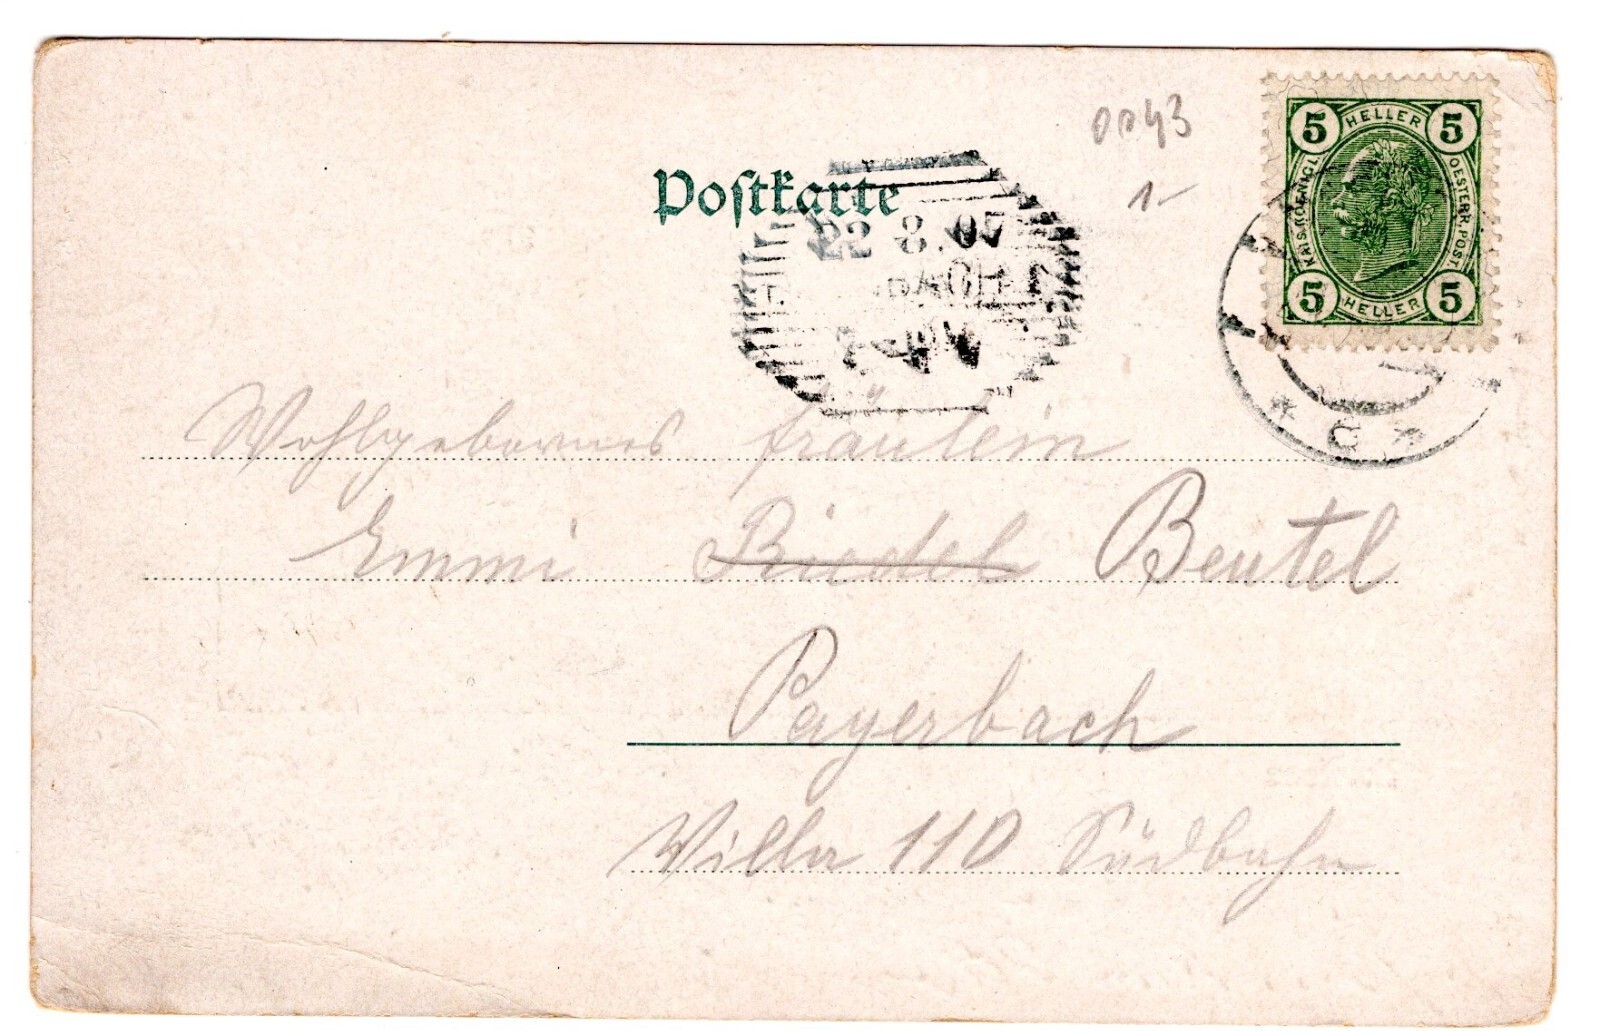 0043
Postkarte
1-
5 HELLER 5
KAIS. KOENIGL. OESTERR. POST
5 HELLER 5
8.07
BACH
Wohlgebornes Fräulein
Emmi Riedel Beutel
Payerbach
Villa 110 Südbahn